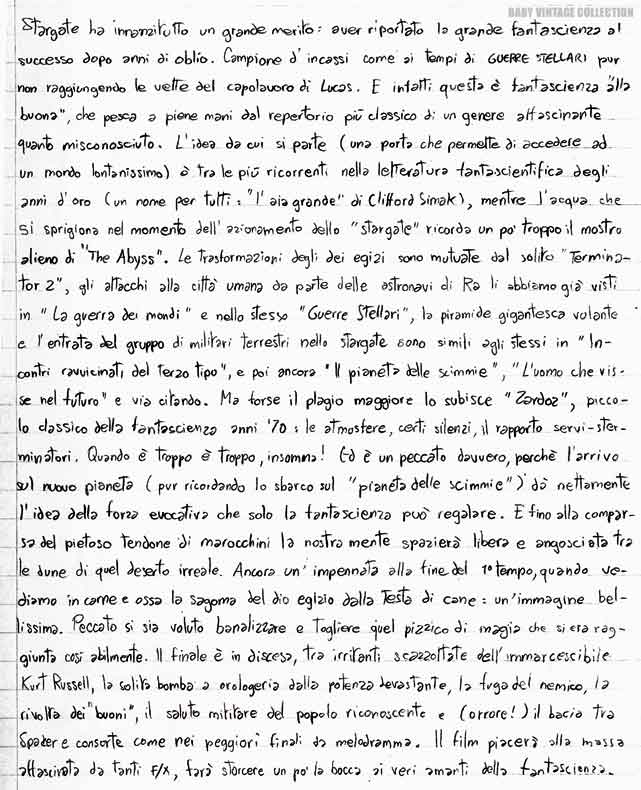 BABY VINTAGE COLLECTION
Stargate ha innanzitutto un grande merito: aver riportato la grande fantascienza al
successo dopo anni di oblio. Campione d'incassi come ai tempi di GUERRE STELLARI pur
non raggiungendo le vette del capolavoro di Lucas. E infatti questa è fantascienza "alla
buona", che pesca a piene mani dal repertorio più classico di un genere affascinante
quanto misconosciuto. L'idea da cui si parte (una porta che permette di accedere ad
un mondo lontanissimo) è tra le più ricorrenti nella letteratura fantascientifica degli
anni d'oro (un nome per tutti: "l'aia grande" di Clifford Simak), mentre l'acqua che
si sprigiona nel momento dell'azionamento dello "stargate" ricorda un po' troppo il mostro
alieno di "The Abyss". Le trasformazioni degli dei egizi sono mutuate dal solito "Termina-
tor 2", gli attacchi alla città umana da parte delle astronavi di Ra li abbiamo già visti
in "La guerra dei mondi" e nello stesso "Guerre Stellari", la piramide gigantesca volante
e l'entrata del gruppo di militari terrestri nello stargate sono simili agli stessi in "In-
contri ravvicinati del terzo tipo", e poi ancora "Il pianeta delle scimmie", "L'uomo che vis-
se nel futuro" e via citando. Ma forse il plagio maggiore lo subisce "Zardoz", picco-
lo classico della fantascienza anni '70: le atmosfere, certi silenzi, il rapporto servi-ster-
minatori. Quando è troppo è troppo, insomma! Ed è un peccato davvero, perchè l'arrivo
sul nuovo pianeta (pur ricordando lo sbarco sul "pianeta delle scimmie") dà nettamente
l'idea della forza evocativa che solo la fantascienza può regalare. E fino alla compar-
sa del pietoso tendone di marocchini la nostra mente spazierà libera e angosciata tra
le dune di quel deserto irreale. Ancora un'impennata alla fine del 1° tempo, quando ve-
diamo in carne e ossa la sagoma del dio egizio dalla testa di cane: un'immagine bel-
lissima. Peccato si sia voluto banalizzare e togliere quel pizzico di magia che si era rag-
giunta così abilmente. Il finale è in discesa, tra irritanti scazzottate dell'immarcescibile
Kurt Russell, la solita bomba a orologeria dalla potenza devastante, la fuga del nemico, la
rivolta dei "buoni", il saluto militare del popolo riconoscente e (orrore!) il bacio tra
Spader e consorte come nei peggiori finali da melodramma. Il film piacerà alla massa
affascinata da tanti F/X, farà storcere un po' la bocca ai veri amanti della fantascienza.